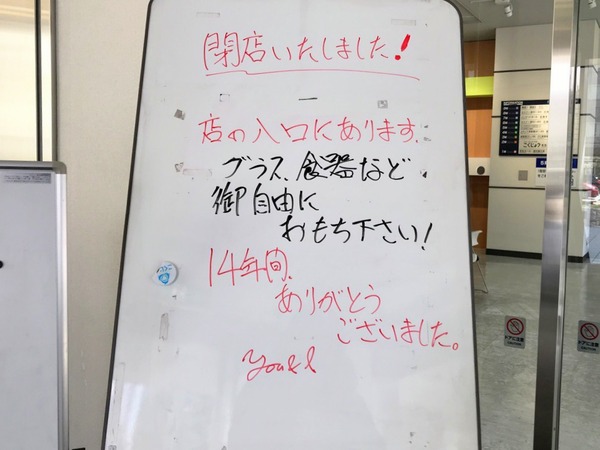 閉店いたしました!
店の入口にあります。
グラス、食器など
御自由に
おもち下さい!
14年間、
ありがとう
ございました。
You&I
こくじょう
ドアに注意
ドアに注意